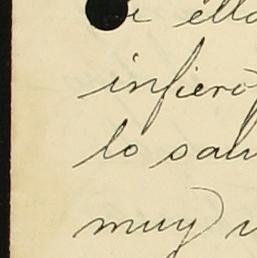 i ello
infiero
lo salu
muy v